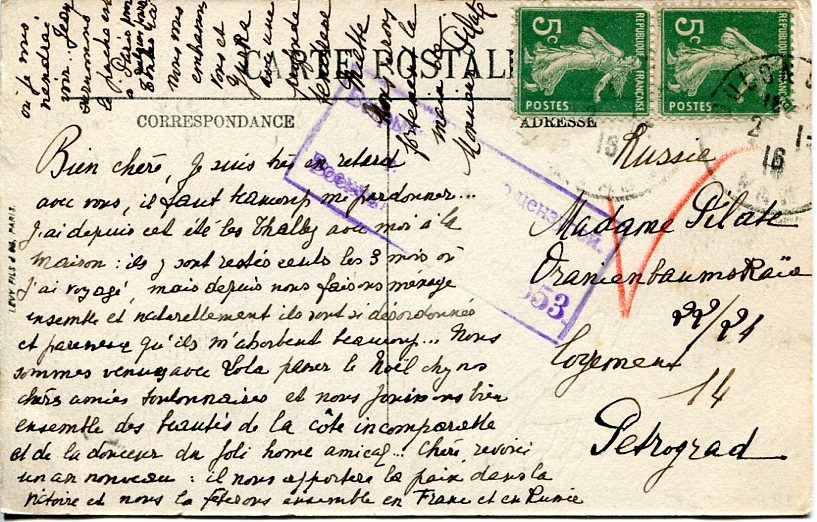 CARTE POSTALE
CORRESPONDANCE
ADRESSE
5c
REPUBLIQUE FRANÇAISE
POSTES
5c
REPUBLIQUE FRANÇAISE
POSTES
16
2
16
LEVY FILS & Cie, PARIS.
Bien chéré, Je suis très en retard
avec vous, il faut beaucoup me pardonner...
J'ai depuis cet été les Thalby avec moi à la
maison : ils y sont restés seuls les 3 mois où
j'ai voyagé, mais depuis nous faisons ménage
ensemble et naturellement ils sont si désordonnés
et paresseux qu'ils m'absorbent beaucoup... Nous
sommes venus avec Lola passer le Noël chez nos
chères amies toulonnaises et nous jouissons bien
ensemble des beautés de la côte incomparable
et de la douceur du joli home amical... Chéré, revoici
un an nouveau : il nous apportera la paix dans la
victoire et nous la fêterons ensemble en France et en Russie
où je vous
Nous vous
embrassons
tous et
avec une
profonde
tendresse
fortement la
main de
Monsieur Pilate
Russie
Madame Pilate
Oranienbaumskaïa
22/24
Logement
14
Petrograd
цензурой.
553.